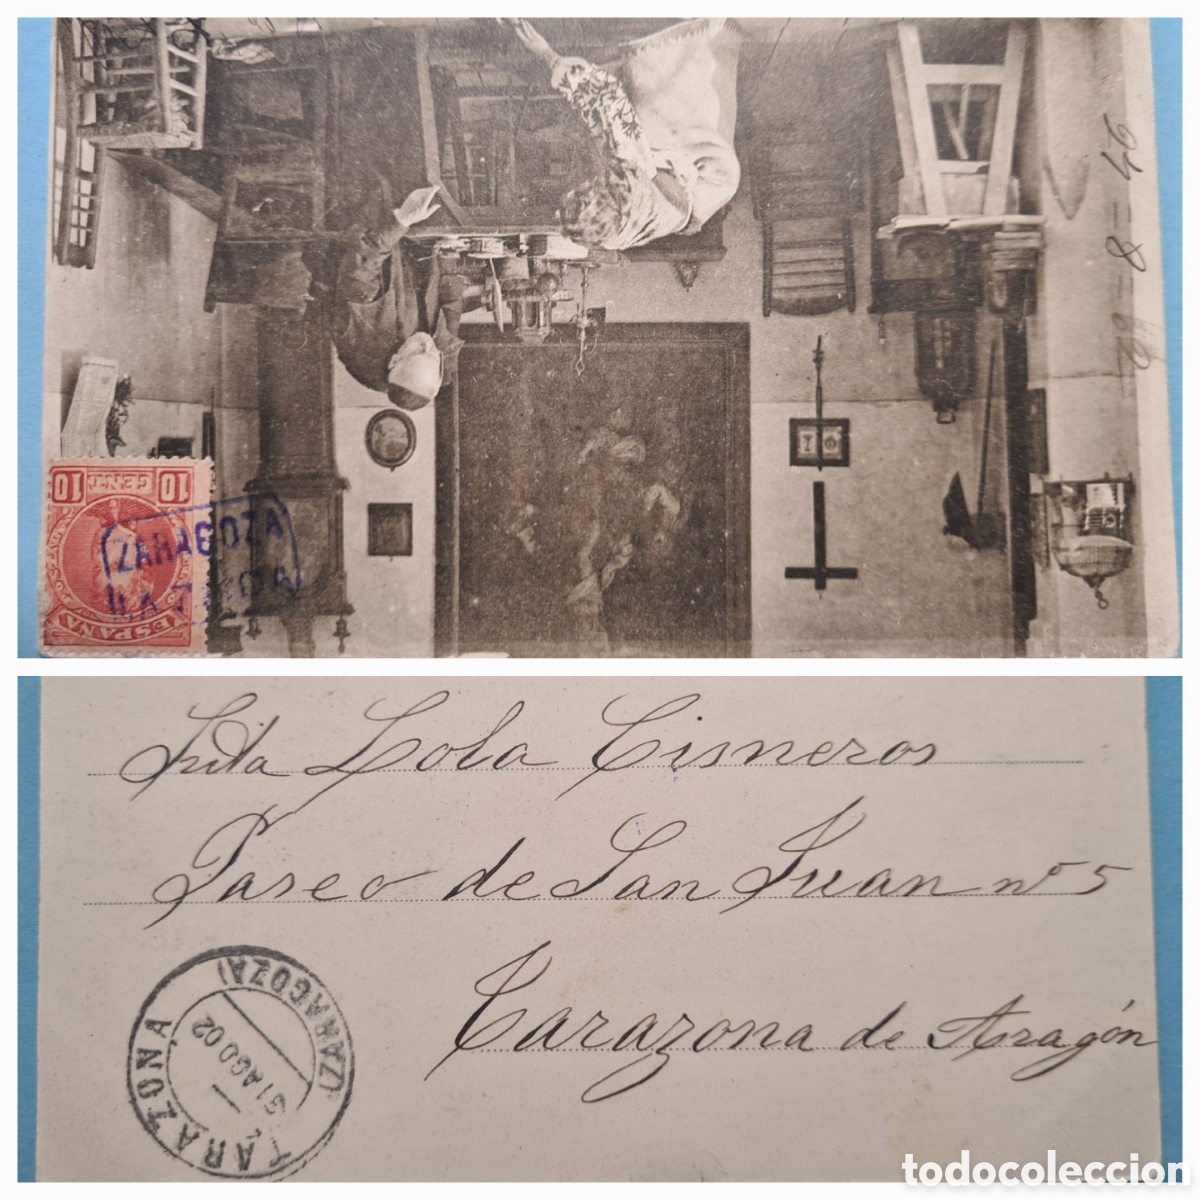 10 CENT 10
ESPAÑA
ZARAGOZA
29-8-46
7 6
Srita Lola Cisneros
Paseo de San Juan nº 5
Tarazona de Aragón
TARAZONA
(ZARAGOZA)
31 AGO 02
todocoleccion